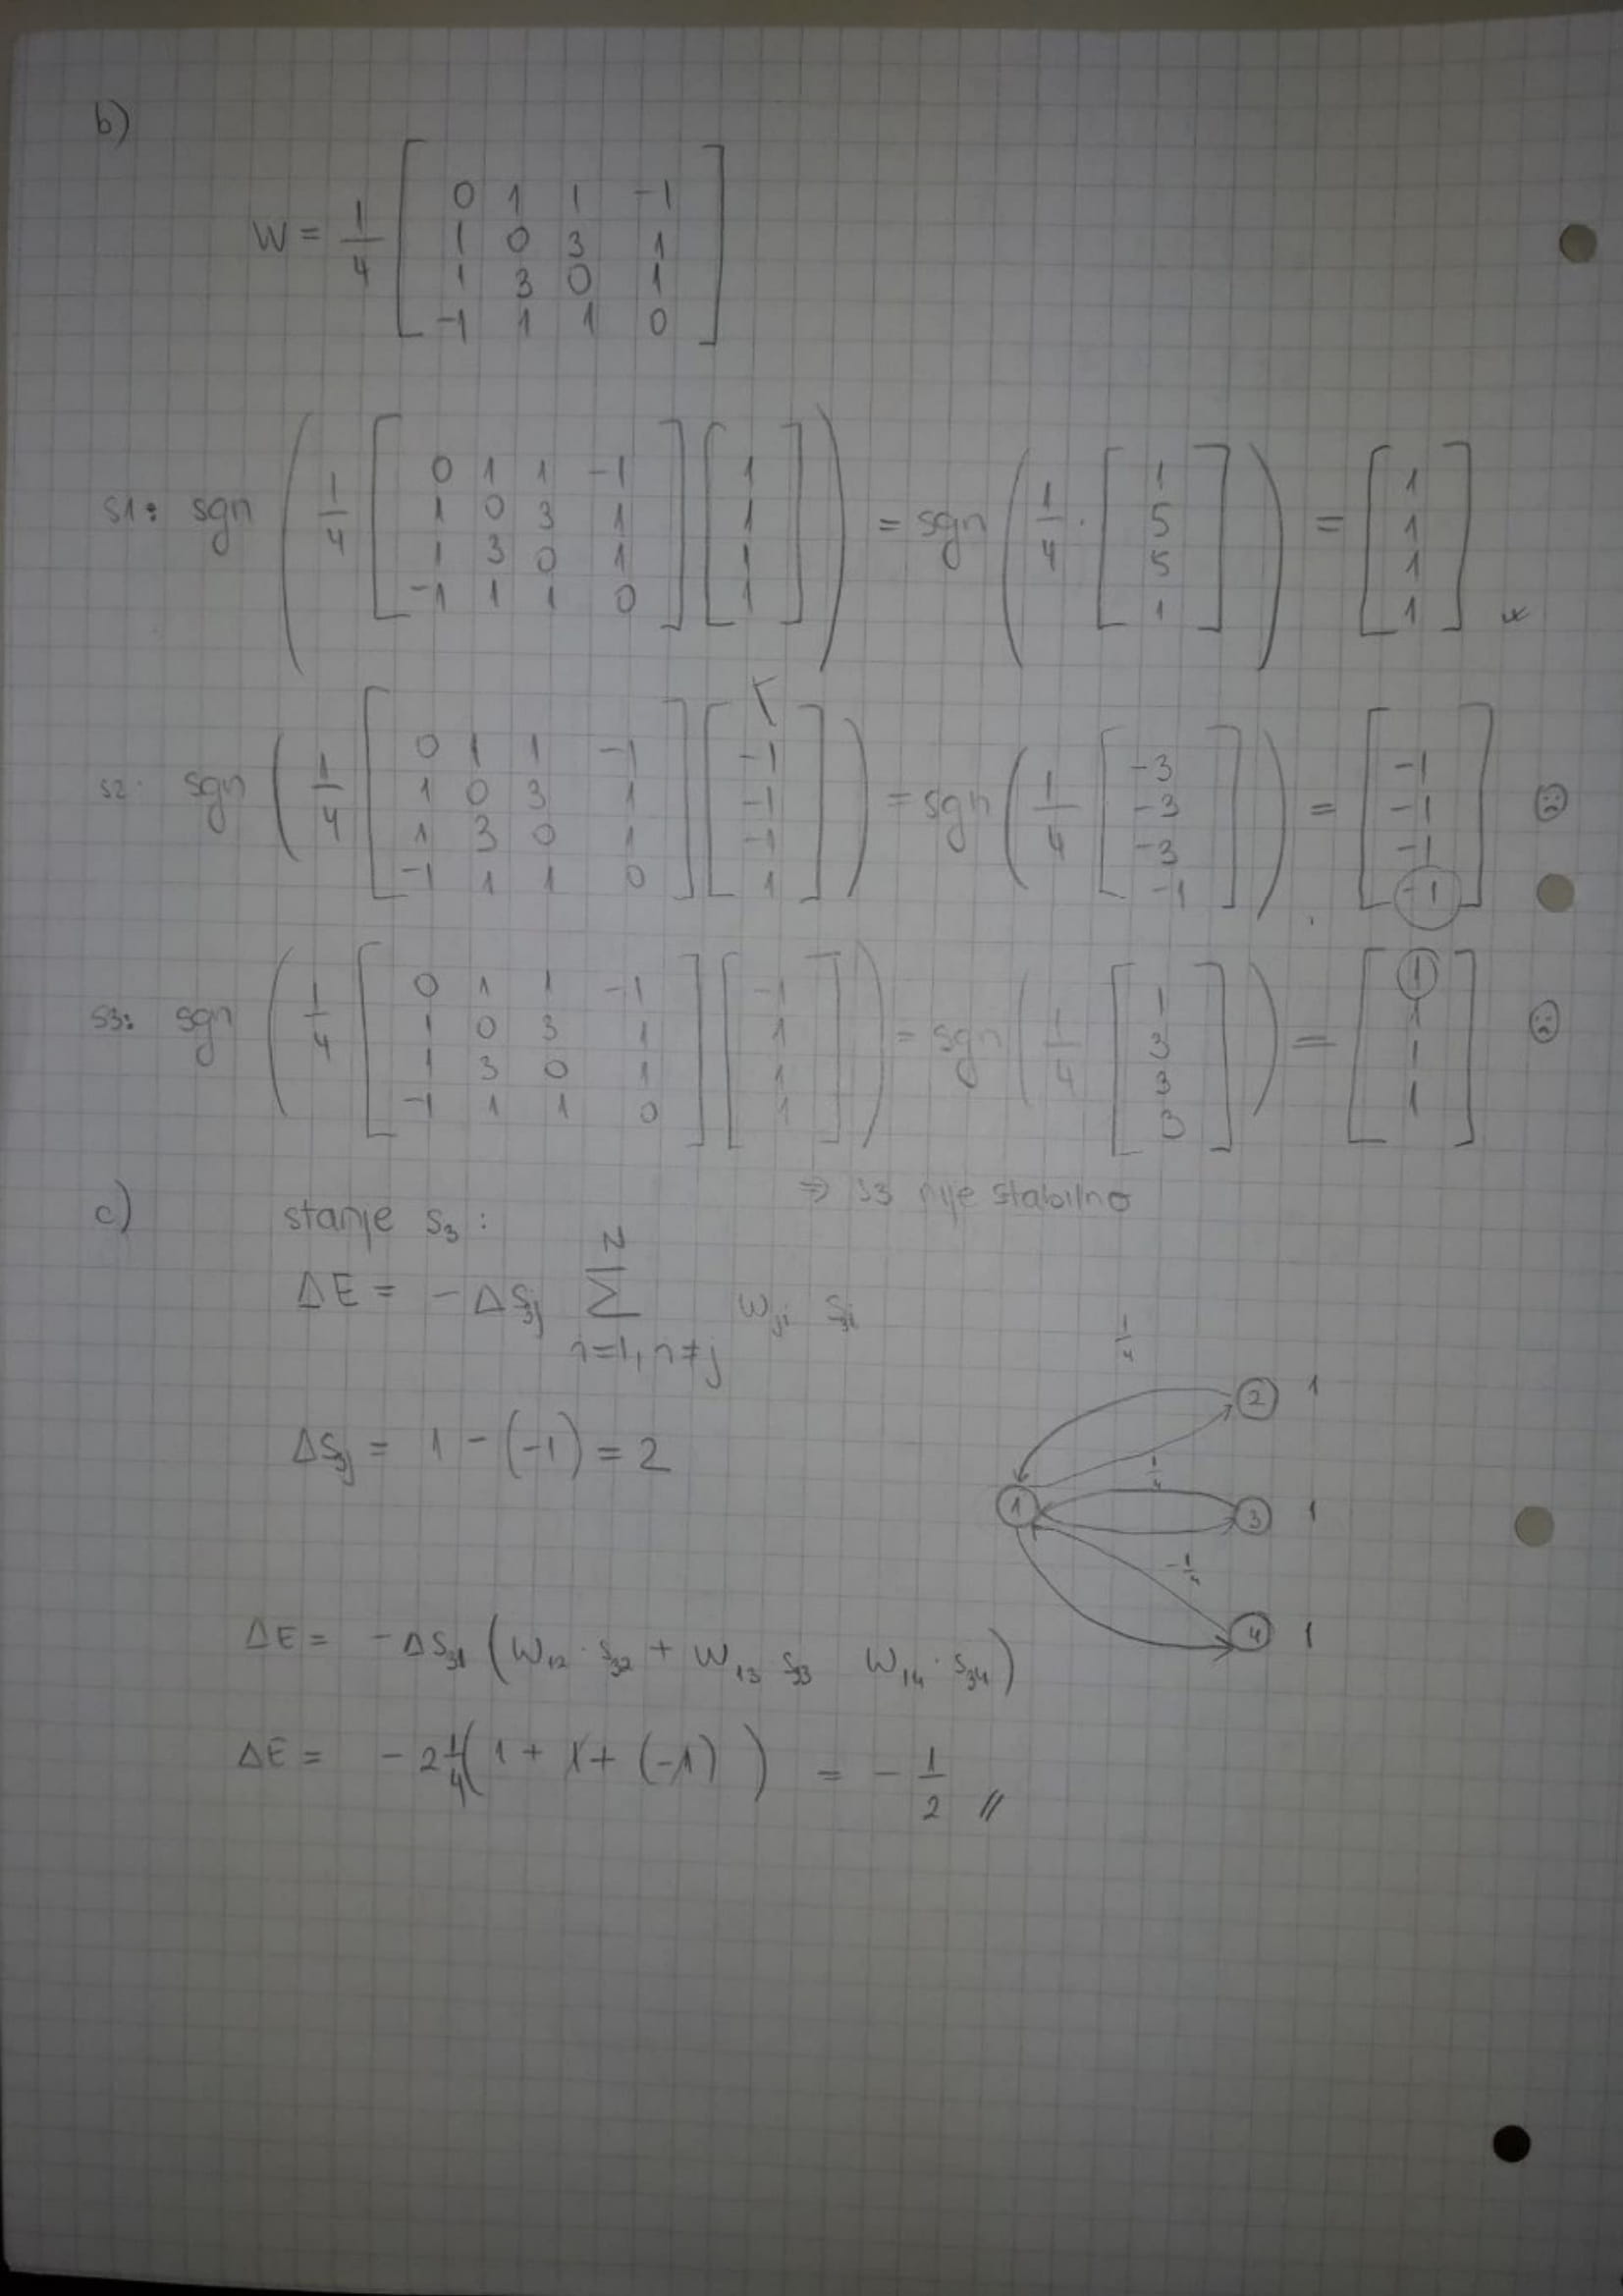 b)
W = 1/4 [ 0 1 1 -1
1 0 3 1
1 3 0 1
-1 1 1 0 ]
s1: sgn ( 1/4 [ 0 1 1 -1 ; 1 0 3 1 ; 1 3 0 1 ; -1 1 1 0 ] [ 1 ; 1 ; 1 ; 1 ] ) = sgn ( 1/4 · [ 1 ; 5 ; 5 ; 1 ] ) = [ 1 ; 1 ; 1 ; 1 ]
s2: sgn ( 1/4 [ 0 1 1 -1 ; 1 0 3 1 ; 1 3 0 1 ; -1 1 1 0 ] [ -1 ; -1 ; -1 ; 1 ] ) = sgn ( 1/4 [ -3 ; -3 ; -3 ; -1 ] ) = [ -1 ; -1 ; -1 ; -1 ]
s3: sgn ( 1/4 [ 0 1 1 -1 ; 1 0 3 1 ; 1 3 0 1 ; -1 1 1 0 ] [ -1 ; 1 ; 1 ; 1 ] ) = sgn ( 1/4 [ 1 ; 3 ; 3 ; 3 ] ) = [ 1 ; 1 ; 1 ; 1 ]
⇒ s3 nije stabilno
c) stanje s₃ :
ΔE = - Δs₃j Σ N i=1, i≠j wji s₃i
Δs₃j = 1 - (-1) = 2
1/4
2 1
1/4
1 3 1
-1/4
4 1
ΔE = - Δs₃₁ ( w₁₂ · s₃₂ + w₁₃ s₃₃ w₁₄ · s₃₄ )
ΔE = - 2 1/4 ( 1 + 1 + (-1) ) = - 1/2 //